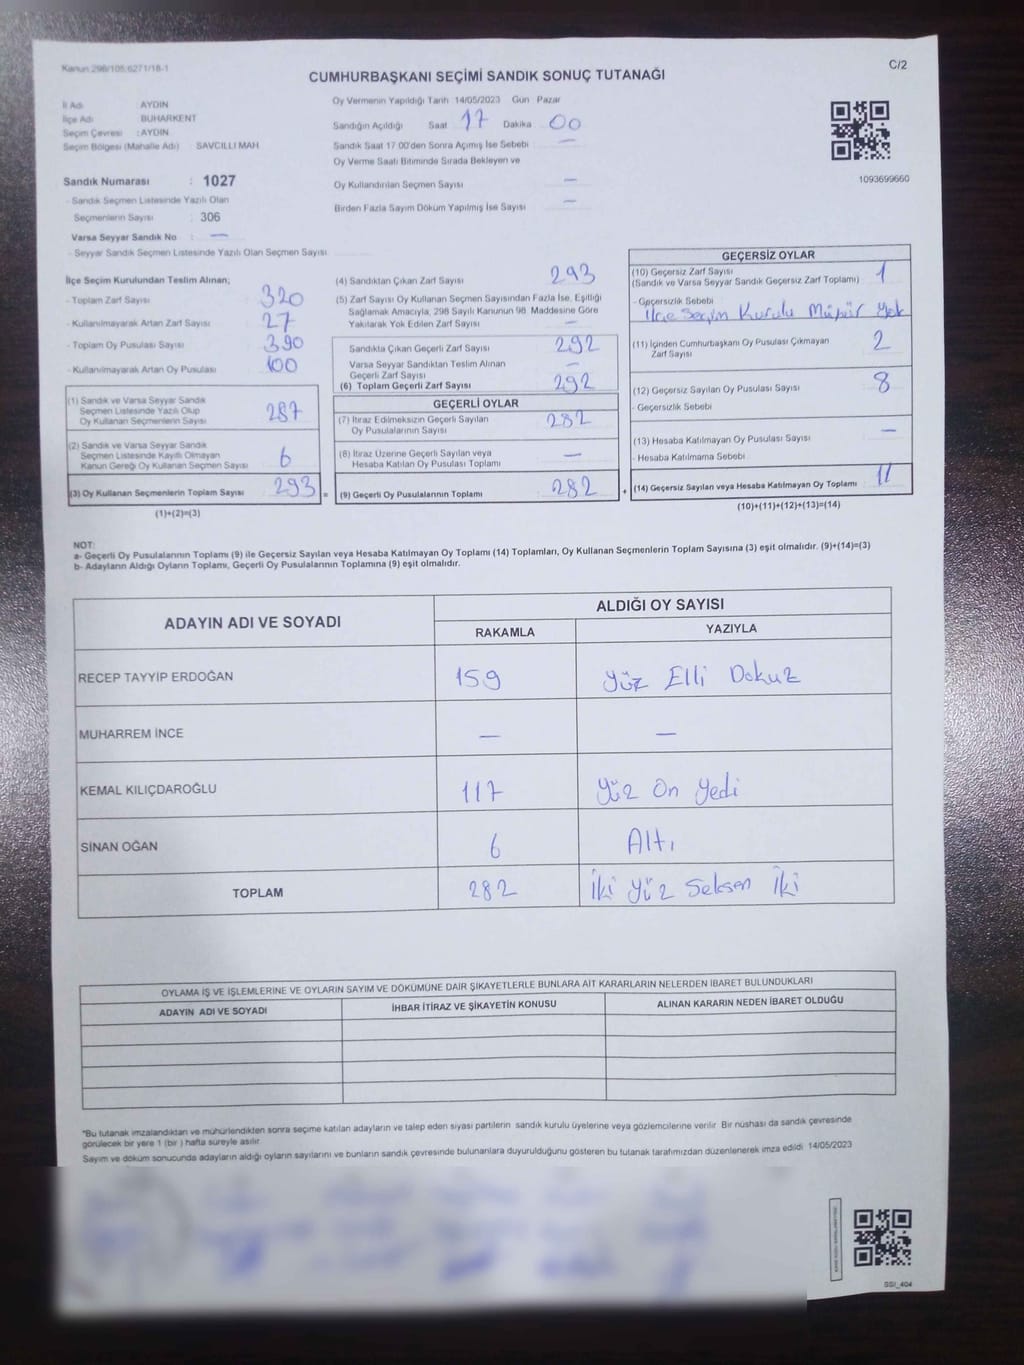 Kanun 298/105;6271/18-1
C/2
CUMHURBAŞKANI SEÇİMİ SANDIK SONUÇ TUTANAĞI
İl Adı AYDIN
İlçe Adı BUHARKENT
Seçim Çevresi : AYDIN
Seçim Bölgesi (Mahalle Adı) SAVCILLI MAH
Sandık Numarası : 1027
- Sandık Seçmen Listesinde Yazılı Olan
Seçmenlerin Sayısı : 306
Varsa Seyyar Sandık No : —
- Seyyar Sandık Seçmen Listesinde Yazılı Olan Seçmen Sayısı
Oy Vermenin Yapıldığı Tarih 14/05/2023 Gün Pazar
Sandığın Açıldığı Saat 17 Dakika 00
Sandık Saat 17 00'den Sonra Açımış İse Sebebi —
Oy Verme Saati Bitiminde Sırada Bekleyen ve
Oy Kullandırılan Seçmen Sayısı —
Birden Fazla Sayım Döküm Yapılmış İse Sayısı —
1093699660
İlçe Seçim Kurulundan Teslim Alınan;
- Toplam Zarf Sayısı 320
- Kullanılmayarak Artan Zarf Sayısı 27
- Toplam Oy Pusulası Sayısı 390
- Kullanılmayarak Artan Oy Pusulası 100
(1) Sandık ve Varsa Seyyar Sandık
Seçmen Listesinde Yazılı Olup
Oy Kullanan Seçmenlerin Sayısı 287
(2) Sandık ve Varsa Seyyar Sandık
Seçmen Listesinde Kayıtlı Olmayan
Kanun Gereği Oy Kullanan Seçmen Sayısı 6
(3) Oy Kullanan Seçmenlerin Toplam Sayısı 293 =
(1)+(2)=(3)
(4) Sandıktan Çıkan Zarf Sayısı 293
(5) Zarf Sayısı Oy Kullanan Seçmen Sayısından Fazla İse, Eşitliği
Sağlamak Amacıyla, 298 Sayılı Kanunun 98. Maddesine Göre
Yakılarak Yok Edilen Zarf Sayısı —
Sandıkta Çıkan Geçerli Zarf Sayısı 292
Varsa Seyyar Sandıktan Teslim Alınan
Geçerli Zarf Sayısı —
(6) Toplam Geçerli Zarf Sayısı 292
GEÇERLİ OYLAR
(7) İtiraz Edilmeksizin Geçerli Sayılan
Oy Pusulalarının Sayısı 282
(8) İtiraz Üzerine Geçerli Sayılan veya
Hesaba Katılan Oy Pusulası Toplamı —
(9) Geçerli Oy Pusulalarının Toplamı 282 +
GEÇERSİZ OYLAR
(10) Geçersiz Zarf Sayısı
(Sandık ve Varsa Seyyar Sandık Geçersiz Zarf Toplamı) 1
- Geçersizlik Sebebi
İlçe Seçim Kurulu Mühür Yok
(11) İçinden Cumhurbaşkanı Oy Pusulası Çıkmayan
Zarf Sayısı 2
(12) Geçersiz Sayılan Oy Pusulası Sayısı 8
- Geçersizlik Sebebi
(13) Hesaba Katılmayan Oy Pusulası Sayısı —
- Hesaba Katılmama Sebebi
(14) Geçersiz Sayılan veya Hesaba Katılmayan Oy Toplamı 11
(10)+(11)+(12)+(13)=(14)
NOT:
a- Geçerli Oy Pusulalarının Toplamı (9) ile Geçersiz Sayılan veya Hesaba Katılmayan Oy Toplamı (14) Toplamları, Oy Kullanan Seçmenlerin Toplam Sayısına (3) eşit olmalıdır. (9)+(14)=(3)
b- Adayların Aldığı Oyların Toplamı, Geçerli Oy Pusulalarının Toplamına (9) eşit olmalıdır.
ADAYIN ADI VE SOYADI ALDIĞI OY SAYISI
RAKAMLA YAZIYLA
RECEP TAYYİP ERDOĞAN 159 Yüz Elli Dokuz
MUHARREM İNCE — —
KEMAL KILIÇDAROĞLU 117 Yüz On Yedi
SİNAN OĞAN 6 Altı
TOPLAM 282 İki Yüz Seksen İki
OYLAMA İŞ VE İŞLEMLERİNE VE OYLARIN SAYIM VE DÖKÜMÜNE DAİR ŞİKAYETLERLE BUNLARA AİT KARARLARIN NELERDEN İBARET BULUNDUKLARI
ADAYIN ADI VE SOYADI İHBAR İTİRAZ VE ŞİKAYETİN KONUSU ALINAN KARARIN NEDEN İBARET OLDUĞU
*Bu tutanak imzalandıktan ve mühürlendikten sonra seçime katılan adayların ve talep eden siyasi partilerin sandık kurulu üyelerine veya gözlemcilerine verilir Bir nüshası da sandık çevresinde
görülecek bir yere 1 (bir ) hafta süreyle asılır.
Sayım ve döküm sonucunda adayların aldığı oyların sayılarını ve bunların sandık çevresinde bulunanlara duyurulduğunu gösteren bu tutanak tarafımızdan düzenlenerek imza edildi 14/05/2023
SSI_404